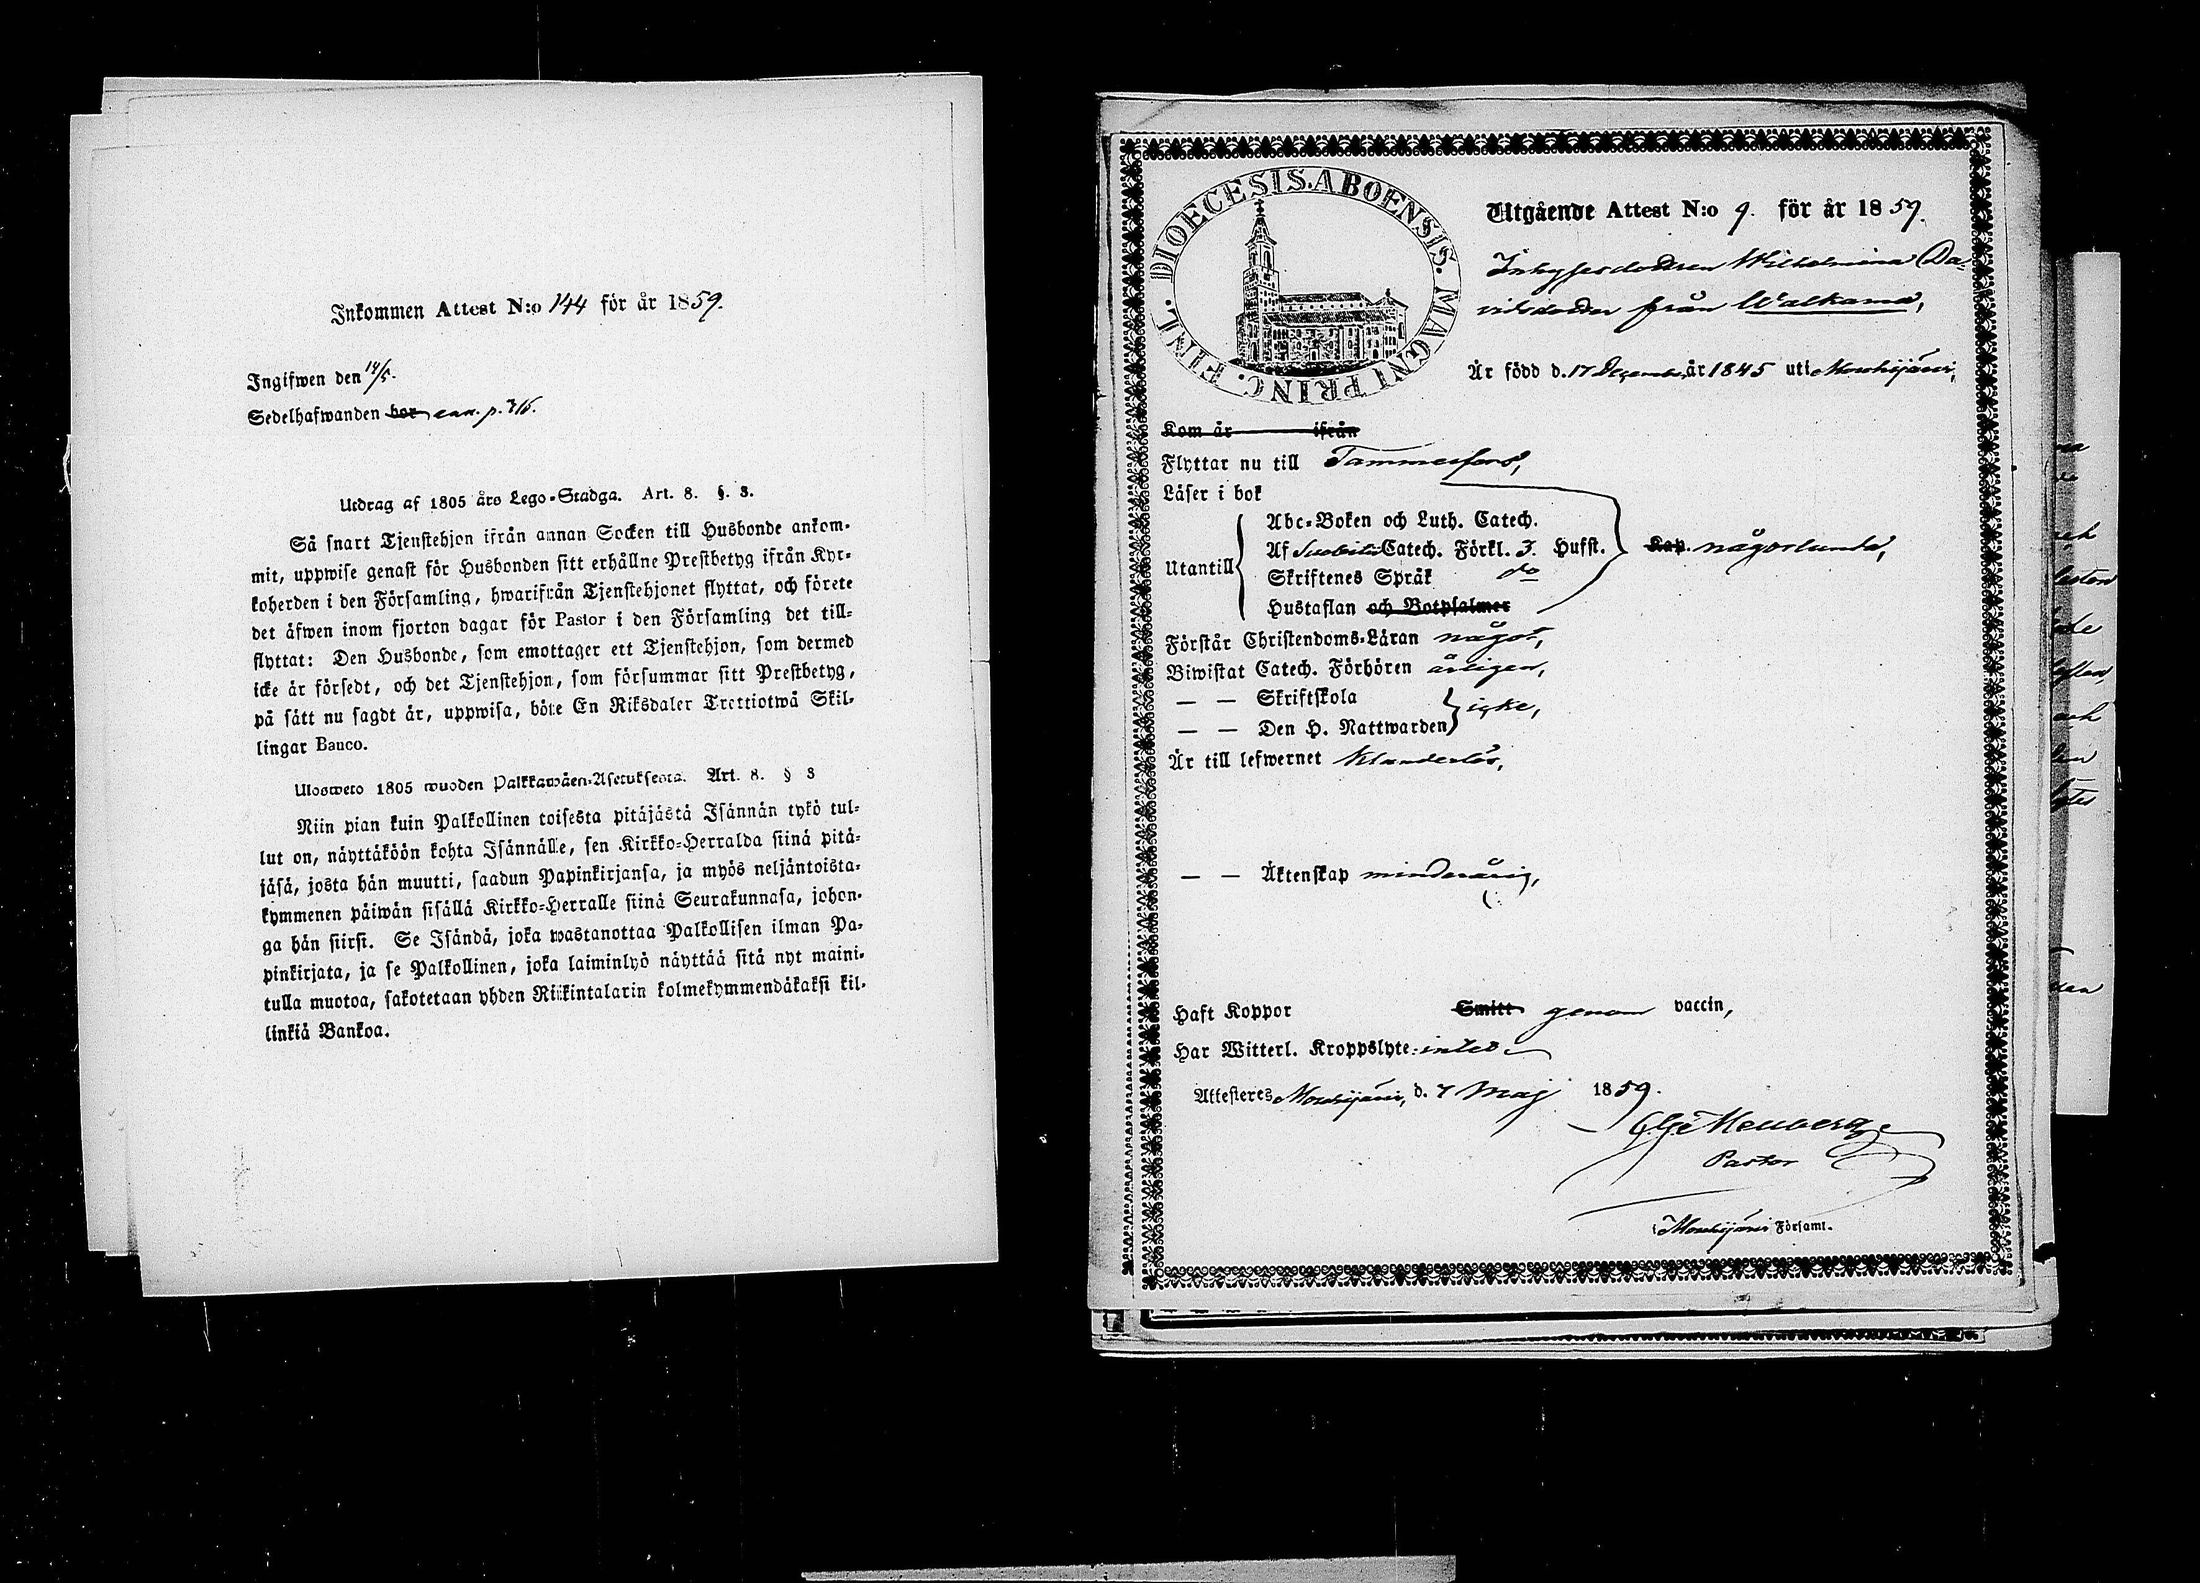 Inkommen Attest N:o 144 för år 1859.
Ingifwen den 14/5.
Sedelhafwanden bor enn. p. 316.
Utdrag af 1805 års Lego-Stadga. Art. 8. §. 3.
Så snart Tjenstehjon ifrån annan Socken till Husbonde ankom-
mit, uppwise genast för Husbonden sitt erhållne Prestbetyg ifrån Kyr-
koherden i den Församling, hwarifrån Tjenstehjonet flyttat, och förete
det äfwen inom fjorton dagar för Pastor i den Församling det till-
flyttat: Den Husbonde, som emottager ett Tjenstehjon, som dermed
icke är försedt, och det Tjenstehjon, som försummar sitt Prestbetyg,
på sätt nu sagdt är, uppwisa, böte En Riksdaler Trettiotwå Skil-
lingar Banco.
Ulosweto 1805 wuoden Palkkawäen-Asetuksesta. Art. 8. § 3
Niin pian kuin Palkollinen toisesta pitäjästä Isännän tykö tul-
lut on, näyttäköön kohta Isännälle, sen Kirkko-Herralda siinä pitä-
jäsä, josta hän muutti, saadun Papinkirjansa, ja myös neljäntoista-
kymmenen päiwän sisällä Kirkko-Herralle siinä Seurakunnasa, johon-
ga hän siirsi. Se Isändä, joka wastanottaa Palkollisen ilman Pa-
pinkirjata, ja se Palkollinen, joka laiminlyö näyttää sitä nyt maini-
tulla muotoa, sakotetaan yhden Riikintalarin kolmekymmendäkaksi kil-
linkiä Bankoa.
DIOECESIS. ABOENSIS. MAGNI PRINC. FINL.
Utgående Attest N:o 9. för år 1859.
Inhysesdottren Wilhelmina Da-
vidsdotter från Walkama,
Är född d. 17 December år 1845 uti Mouhijärvi,
Kom år ifrån
Flyttar nu till Tammerfors,
Läser i bok
Utantill
Abc-Boken och Luth. Catech.
Af Svebilii Catech. Förkl. 3. Hufst.
Skriftenes Språk do
Hustaflan och Botpsalmer
Kap. någorlunda,
Förstår Christendoms-Läran något,
Biwistat Catech. Förhören årligen,
— — Skriftskola
— — Den H. Nattwarden
icke,
Är till lefwernet klanderlös,
— — Äktenskap minderårig,
Haft Koppor Smitt genom vaccin,
Har Witterl. Kroppslyte: intet
Attesteres Mouhijärvi, d. 7 Maj 1859.
Pastor
i Mouhijärvi Församl.